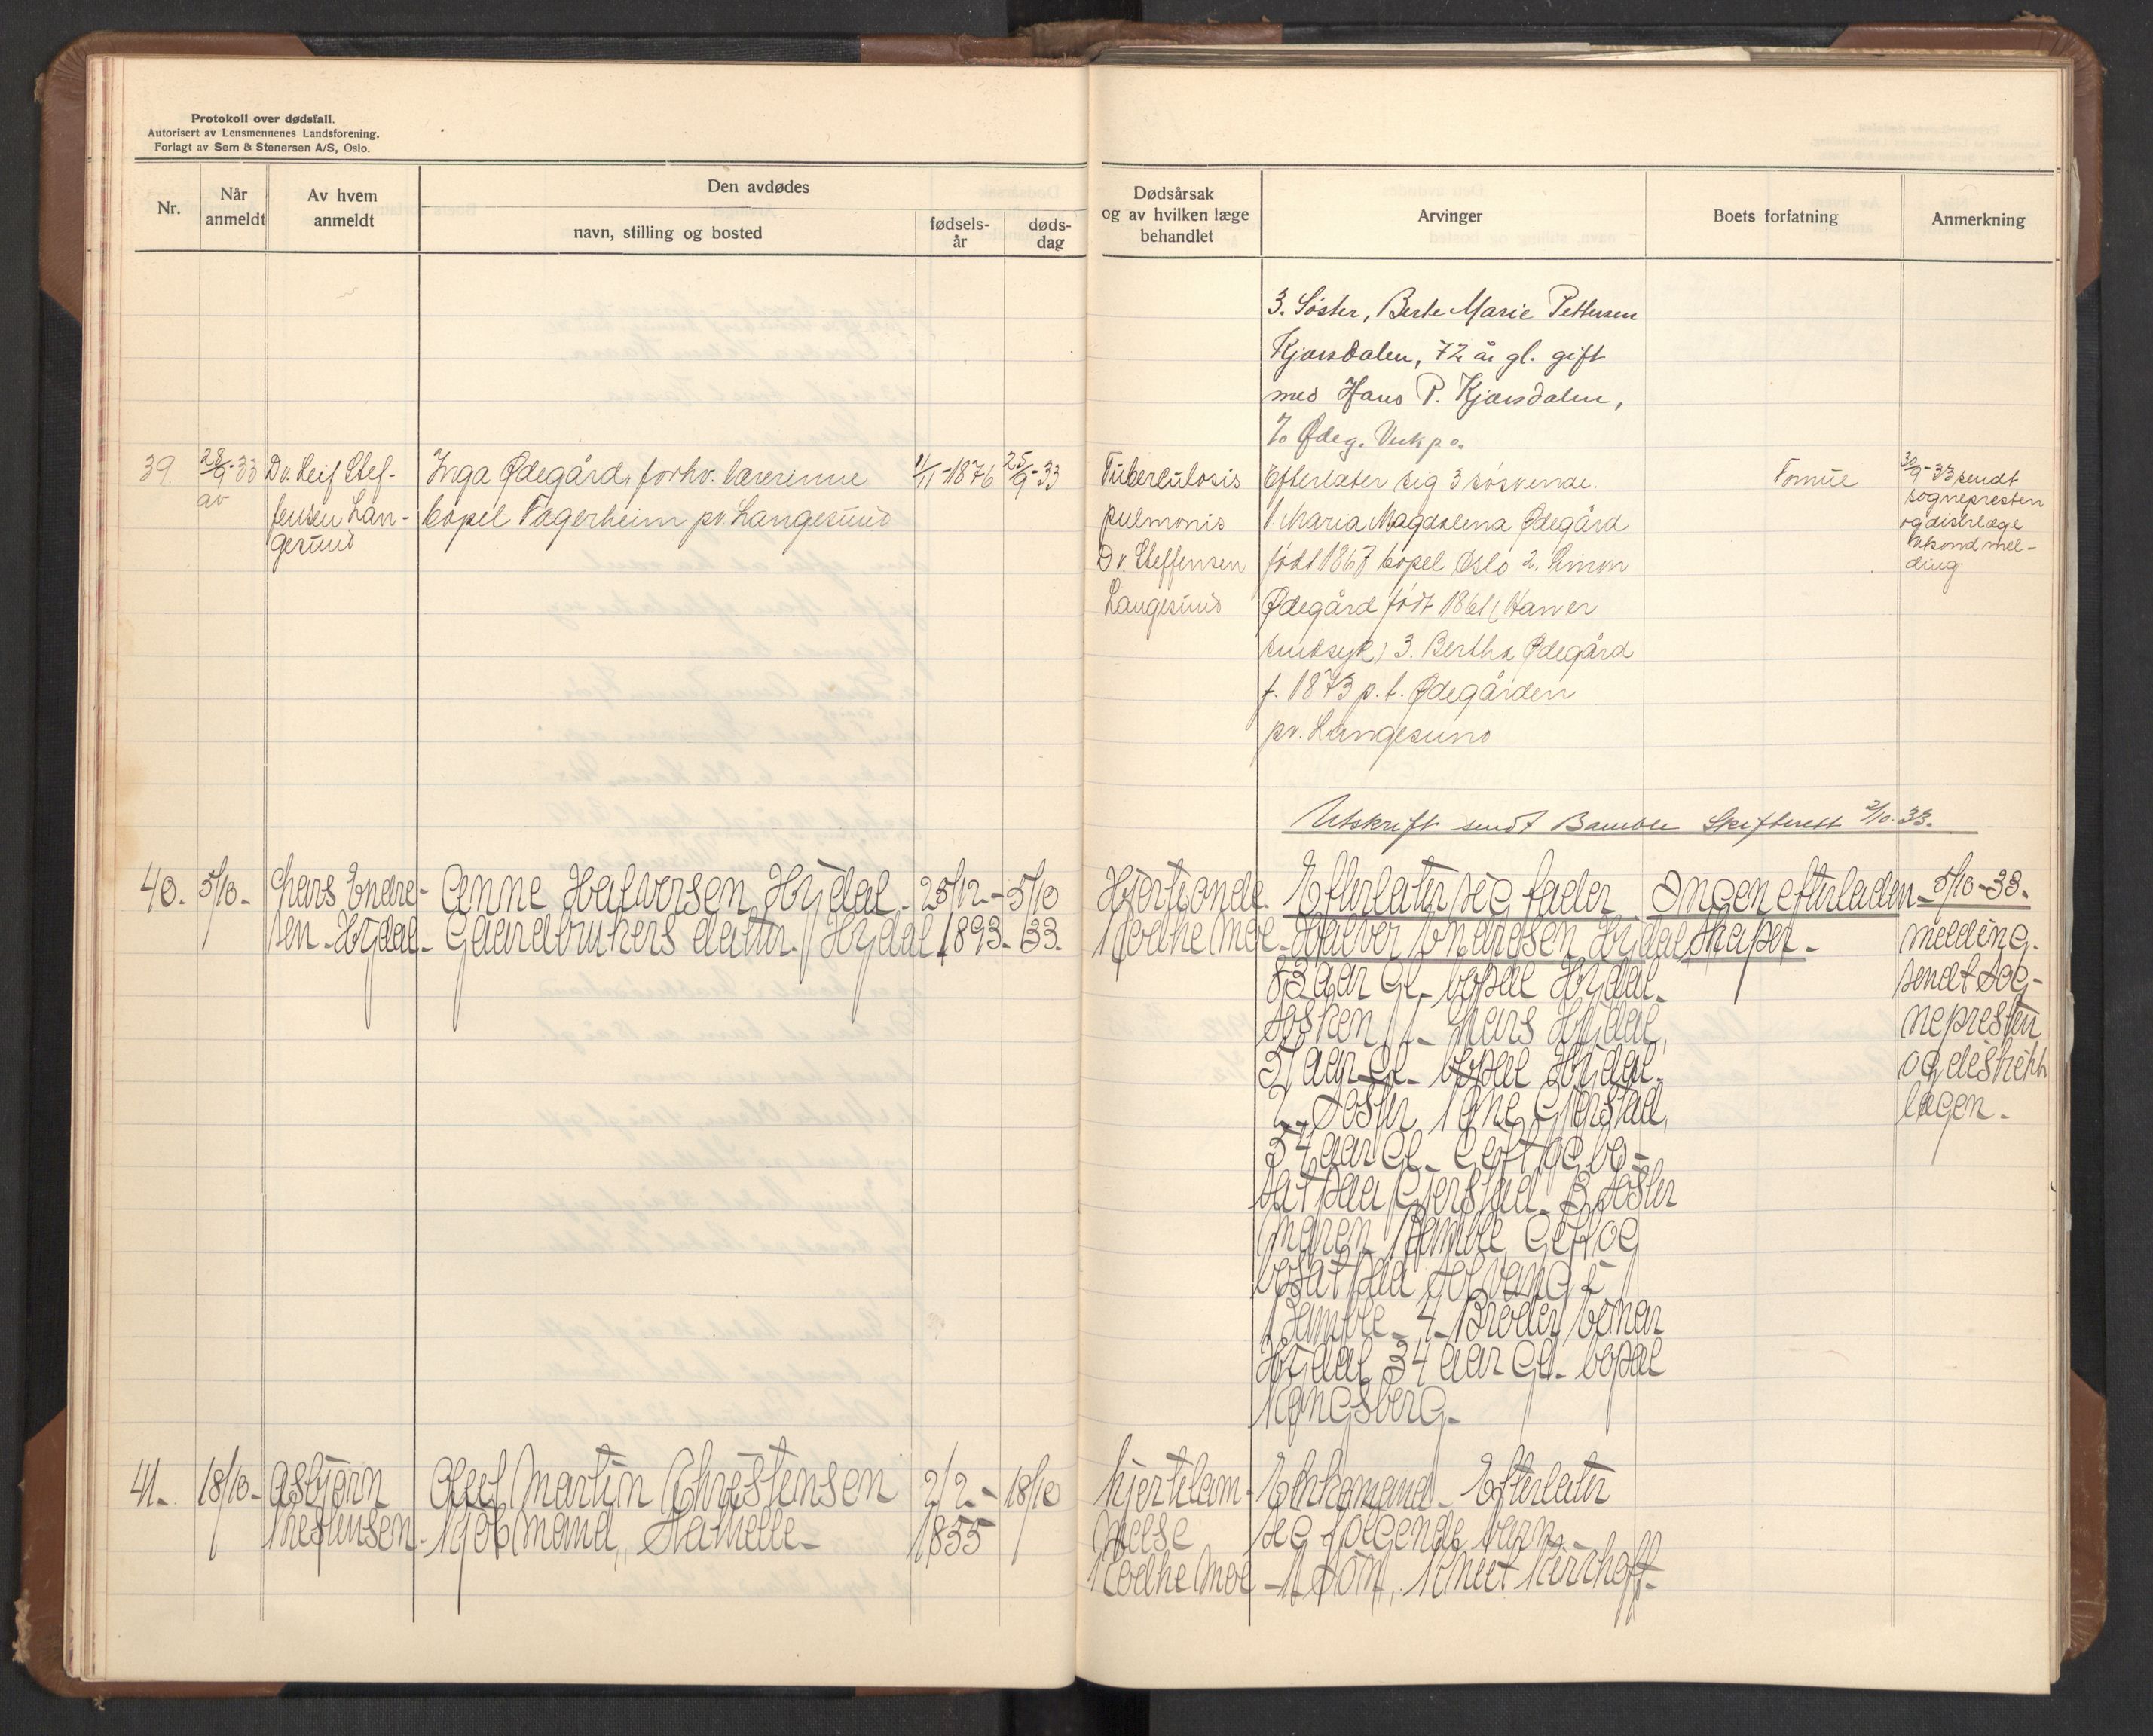 Protokoll over dødsfall.
Autorisert av Lensmennenes Landsforening.
Forlagt av Sem & Stenersen A/S, Oslo.
Nr.
Når
anmeldt
Av hvem
anmeldt
Den avdødes
navn, stilling og bosted
fødsels-
år
døds-
dag
Dødsårsak
og av hvilken læge
behandlet
Arvinger
Boets forfatning
Anmerkning
3. Søster, Berte Marie Pettersen
Kjærsdalen, 72 år gl. gift
med Hans P. Kjærsdalen,
Ødeg. Verk p.o.
39.
28/9-33
av
Dr. Leif Stef-
fensen Lan-
gesund
Inga Ødegård, forhv. lærerinne
bopel Fagerheim pr. Langesund
11/11-1876
25/9-33
Tuberculosis
pulmonis
Dr. Steffensen
Langesund
Efterlater sig 3 søskende.
1. Maria Magdalena Ødegård
født 1867 bopel Oslo 2. Simon
Ødegård født 1861 (Han er
sindsyk) 3. Bertha Ødegård
f. 1873 p.t. Ødegården
pr. Langesund
Formue
30/9-33 sendt
sognepresten
og distr.læge
mel-
ding
Utskrift sendt Bamble Skifterett 2/10.33.
40.
5/10-
Lars Endre-
sen-Hydal-
Anne Halversen Hydal-
Gaardbrukers datter. Hydal
25/12-
1893-
5/10
33.
Hjerteonde
Kodhe Moe-
Efterlater sig fader
Halver Endresen Hydal
83 aar gl. bopæl Hydal.
søsken 1- Lars Hydal,
51 aar gl- bopæl Hydal.
2- søster Tone Gjerstad,
54 aar gl- Gift og bo-
sat paa Gjerstad. 3 søster
Maren Bamble Gift og
bosat paa Solvang i
Bamble- 4- Broder
Hydal 34 aar gl. bopæl
Kongsberg-
Ingen efterladen-
skaper-
5/10-33.
melding.
sendt sog-
nepresten
og distrikts
lægen-
41.
18/10-
Asbjørn
Kristensen-
Oluf Martin Christensen
Kjøbmand, Stathelle-
2/2-
1855
18/10
hjertelam-
melse
Kodhe Moe
Enkemand- Efterlater
sig følgende barn-
-1 Søn, Knut Kirchoff-